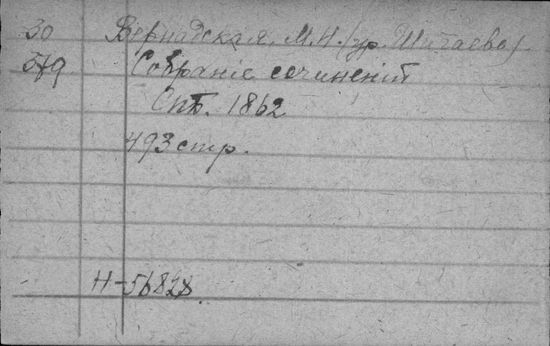 30 Вернадская, М.Н. (ур. Шигаева)
579 Собраніе сочиненій
Спб. 1862
493 стр.
Н-56828